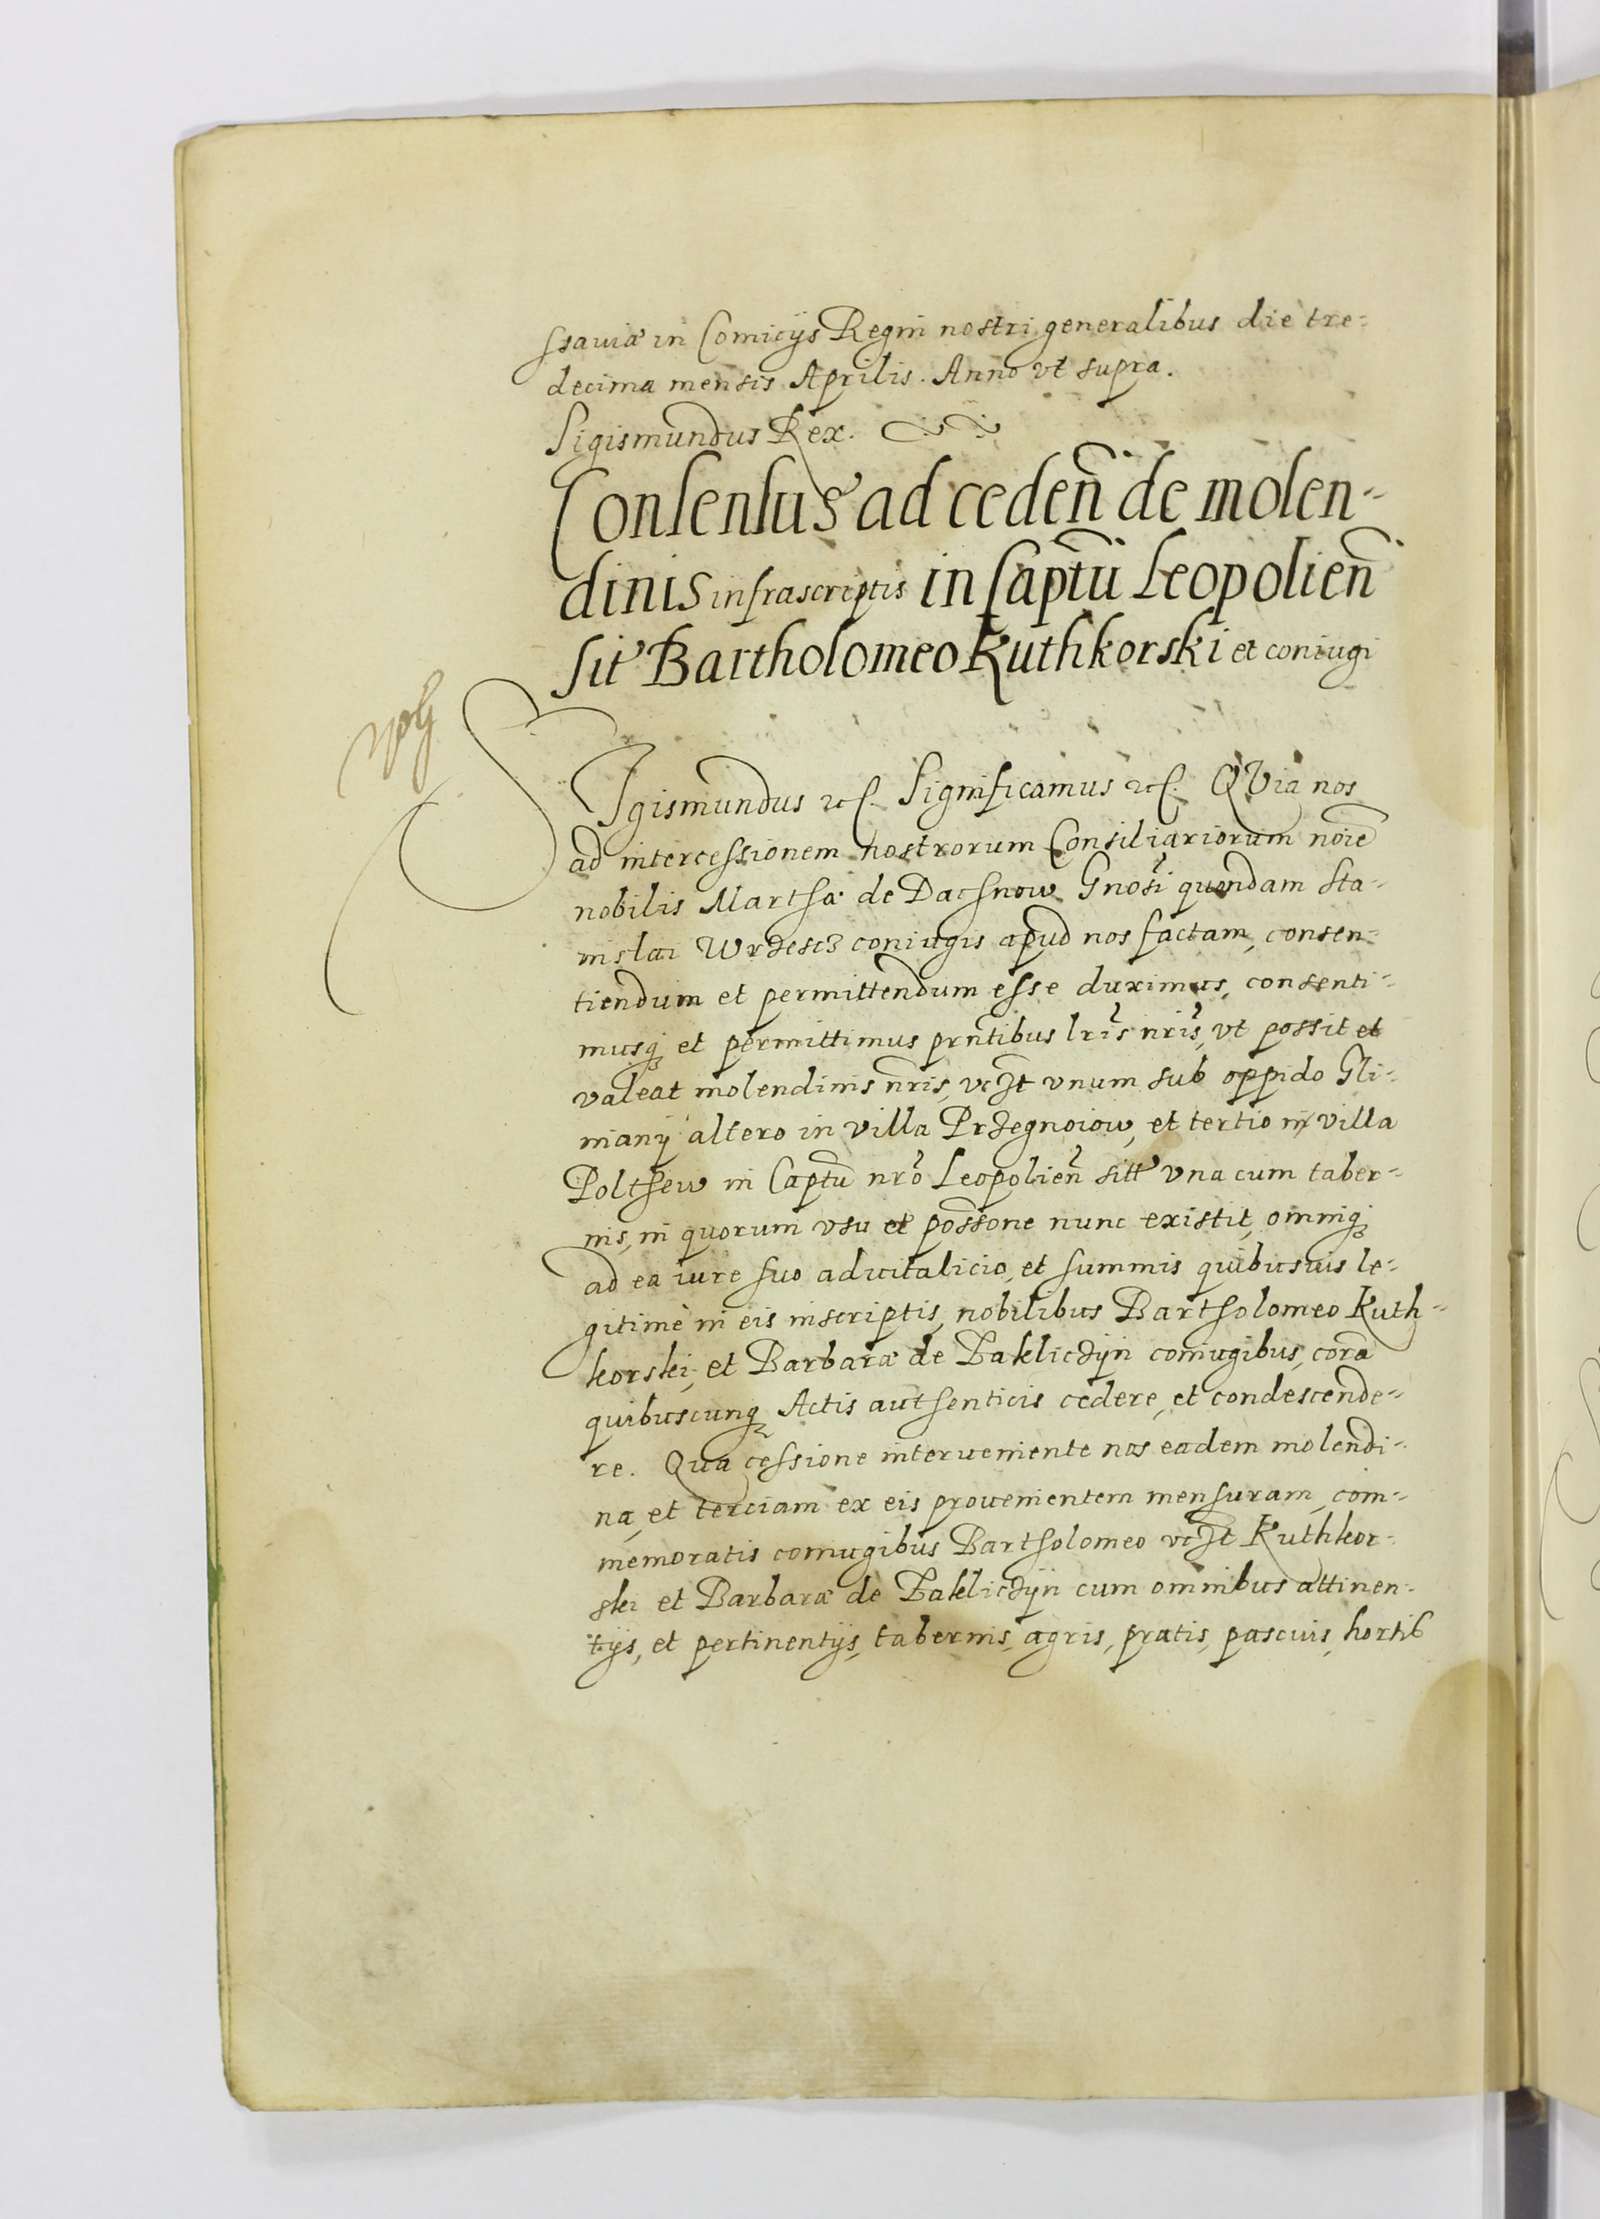 ssauiæ in Comicÿs Regni nostri generalibus die tre-
decima mensis Aprilis. Anno vt supra.
Sigismundus Rex.
Consensus ad ceden̄ de molen-
dinis infrascriptis in Captū Leopolien̄
sit Bartholomeo Ruthkorski et coniugi
SIgismundus etc. Significamus etc. QVia nos
ad intercessionem nostrorum Consiliariorum noīe
nobilis Marthæ de Dachnow Gnosi quondam Sta-
nislai Wrzescz coniugis apud nos factam, consen-
tiendum et permittendum esse duximus, consenti-
musq̨ et permittimus prn̄tibus lrīs nrīs, vt possit et
valeat molendinis nr̄is, vczt vnum sub oppido Gli-
niany altero in villa Przegnoiow, et tertio in villa
Polthew in Captū nrō Leopolien̄ sitt vna cum taber-
nis, in quorum vsu et possone nunc existit, omniq̨
ad ea iure suo aduitalicio, et summis quibusuis le-
gitimè in eis inscriptis, nobilibus Bartholomeo Ruth-
korski, et Barbaræ de Zakliczyn coniugibus, corā
quibuscunq̨ Actis authenticis cedere, et condescende-
re. Qua cessione interueniente nos eadem molendi-
na, et terciam ex eis prouenientem mensuram, com-
memoratis coniugibus Bartholomeo vczt Ruthkor-
ski et Barbaræ de Zakliczyn cum omnibus attinen-
tijs, et pertinentijs, tabernis, agris, pratis, pascuis, hortis